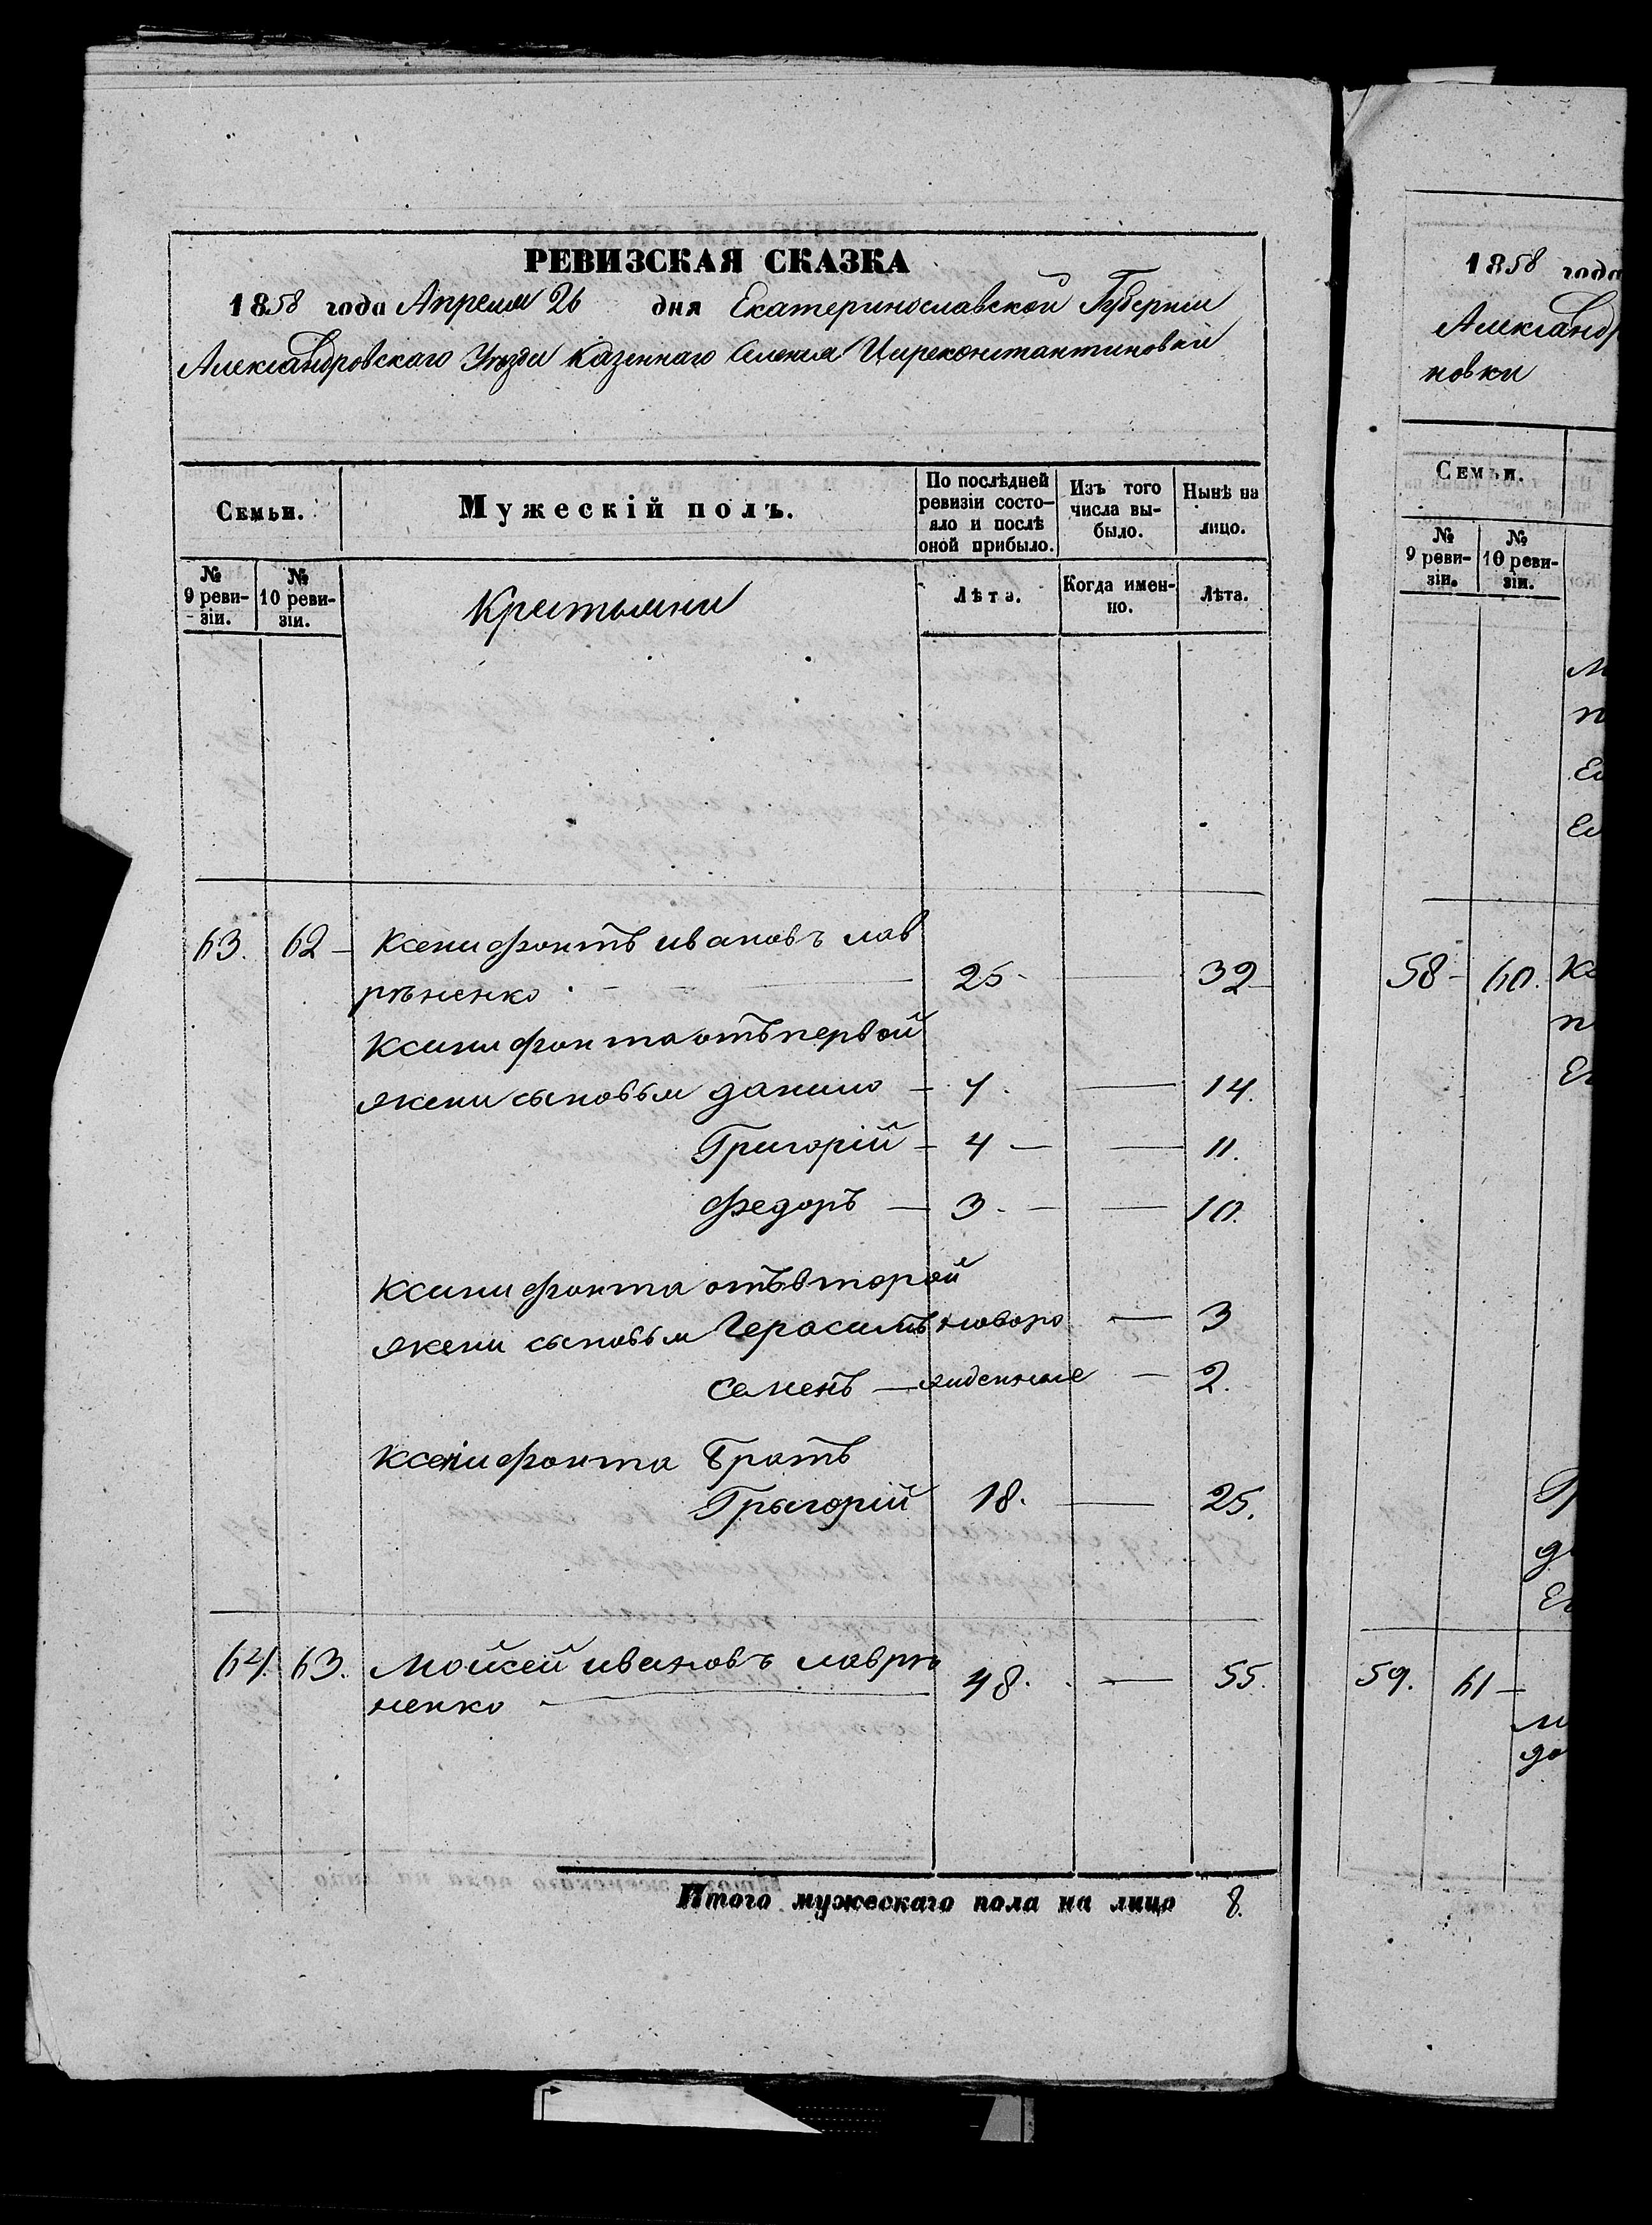 РЕВИЗСКАЯ СКАЗКА
1858 года Апреля 26 дня Екатеринославской Губерніи
Александровскаго Уѣзда Казеннаго Селенія Цареконстантиновки
Семьи.
Мужескій полъ.
По послѣдней ревизіи состо-
яло и послѣ оной прибыло.
Изъ того числа вы-
было.
Нынѣ на лицо.
№ 9 реви-
зіи.
№ 10 реви-
зіи.
Крестьяни
Лѣта.
Когда имен-
но.
Лѣта.
63. 62 - Ксенифонтъ ивановъ лав
рѣненко 25 - — 32
Ксинифонта отъ первой
жени сыновья данило - 7. — 14.
Григорій - 4 — — 11.
Федоръ — 3. - — 10.
Ксинифонта отъ второй
жени сыновья Герасимъ новоро — 3
Семенъ — жиденные — 2.
Ксенифонта братъ
Грыгорій 18. — 25.
64. 63. Мойсей ивановъ лаврѣ
ненко 48. — 55.
Итого мужескаго пола на лицо 8.
1858 года
Александр
новки
Семьи.
№ 9 реви-
зіи.
№ 10 реви-
зіи.
58 - 60.
59. 61 —